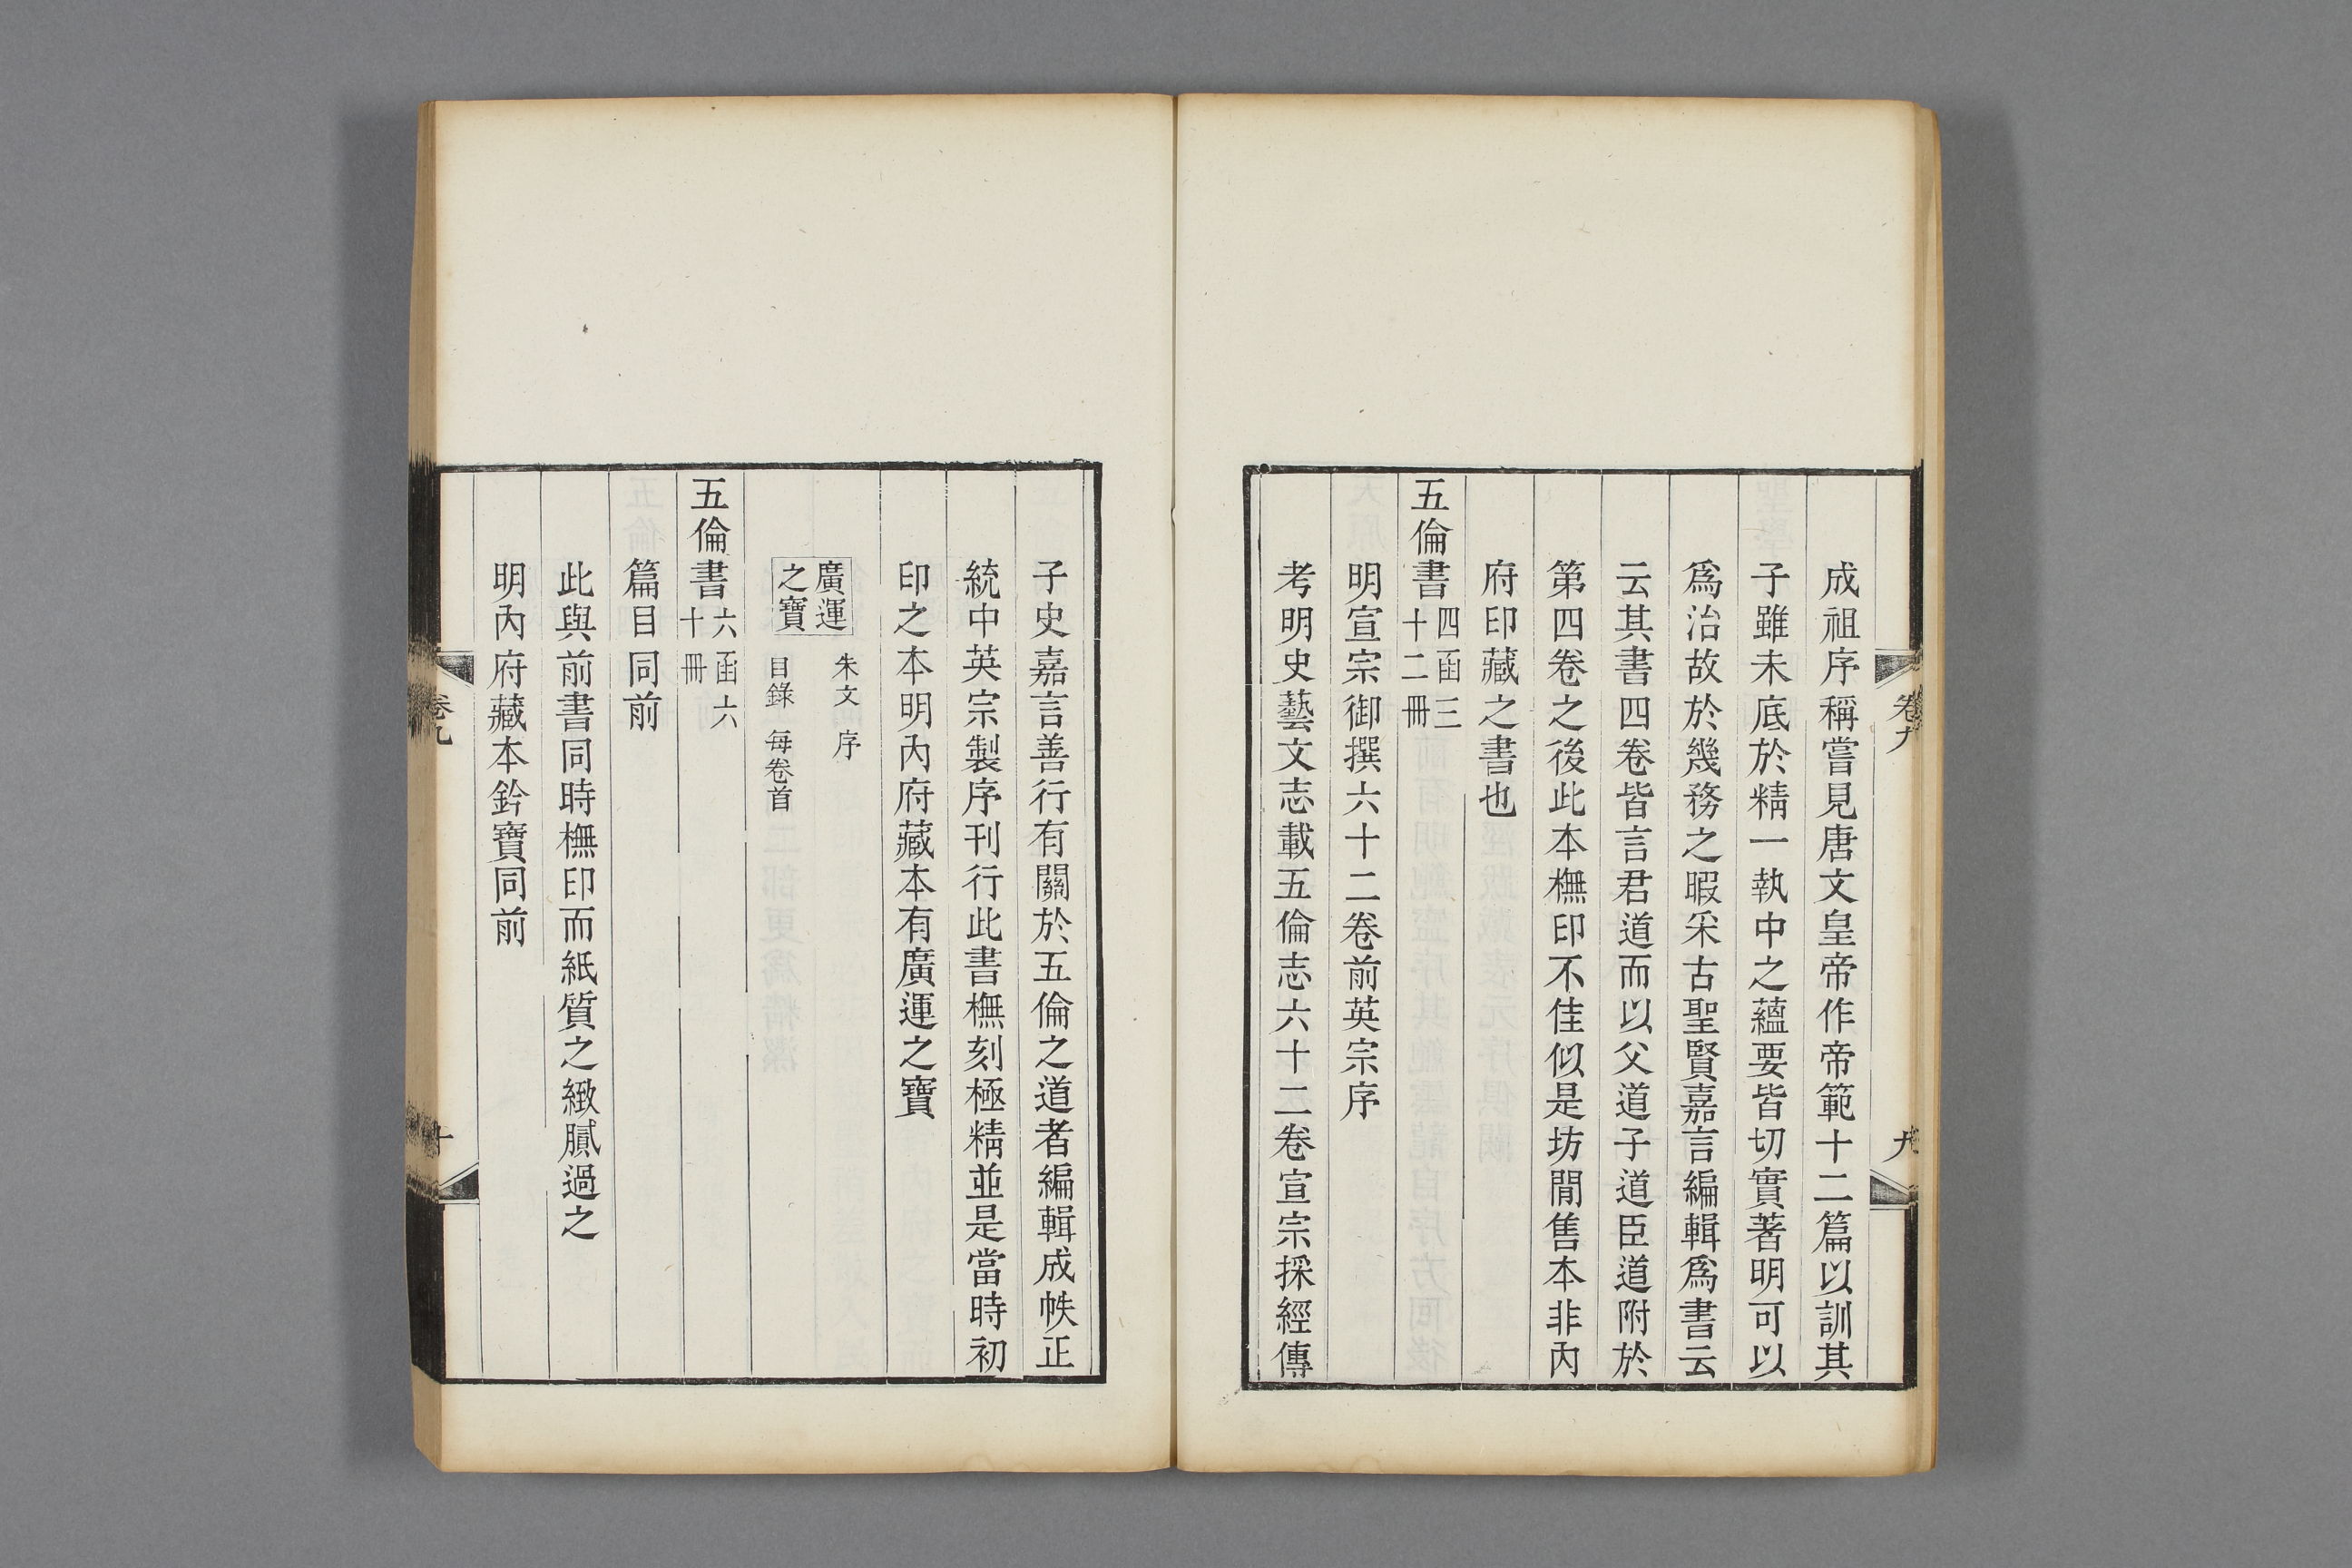 成祖序稱嘗見唐文皇帝作帝範十二篇以訓其
子雖未底於精一執中之蘊要皆切實著明可以
爲治故於幾務之暇采古聖賢嘉言編輯爲書云
云其書四卷皆言君道而以父道子道臣道附於
第四卷之後此本橅印不佳似是坊閒售本非內
府印藏之書也
五倫書四函三十二冊
明宣宗御撰六十二卷前英宗序
考明史藝文志載五倫志六十二卷宣宗採經傳
卷九
九
子史嘉言善行有關於五倫之道者編輯成帙正
統中英宗製序刊行此書橅刻極精並是當時初
印之本明內府藏本有廣運之寶
廣運之寶
朱文 序
目錄 每卷首
五倫書六函六十冊
篇目同前
此與前書同時橅印而紙質之緻膩過之
明內府藏本鈐寶同前
卷九
十